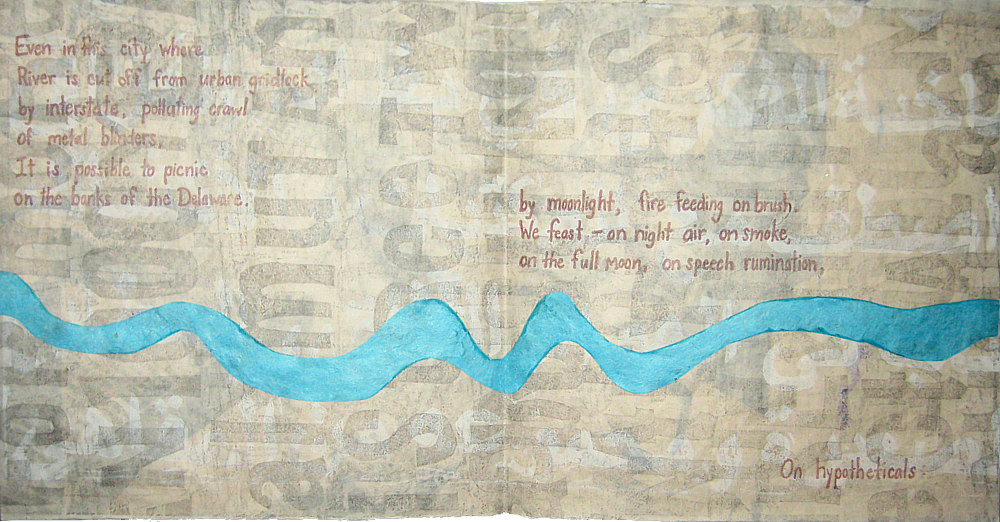 Even in this city where
River is cut off from urban gridlock
by interstate, polluting crawl
of metal blinders,
It is possible to picnic
on the banks of the Delaware.
by moonlight, fire feeding on brush.
We feast, - on night air, on smoke,
on the full moon, on speech rumination,
On hypotheticals